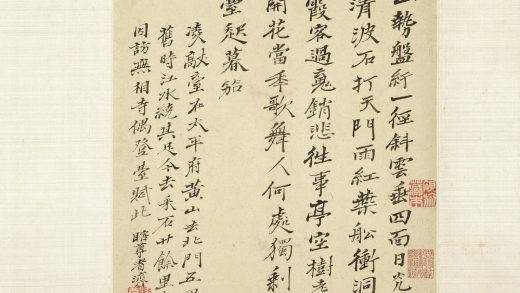 山勢盤紆一徑斜雲垂四面日光
清波石打天門雨紅葉船衝洞
霞客過魂銷悲往事亭空樹老
開花當年歌舞人何處獨剩
臺起暮笳
凌歊臺在太平府黃山去北門五里
舊時江水繞其足今去采石廿餘里
因訪無相寺偶登臺賦此 瞎尊者濟